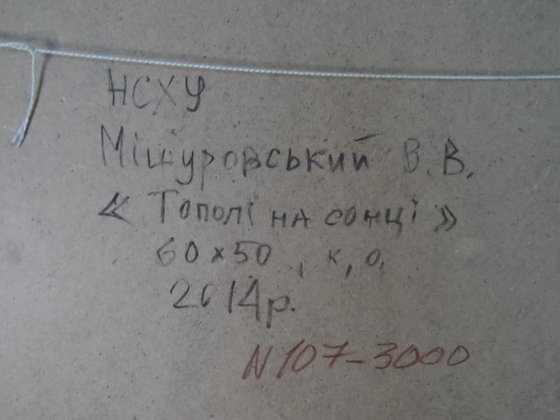 НСХУ
Мішуровський В.В.
« Тополі на сонці »
60х50 , к, о,
2014р.
N 107-3000